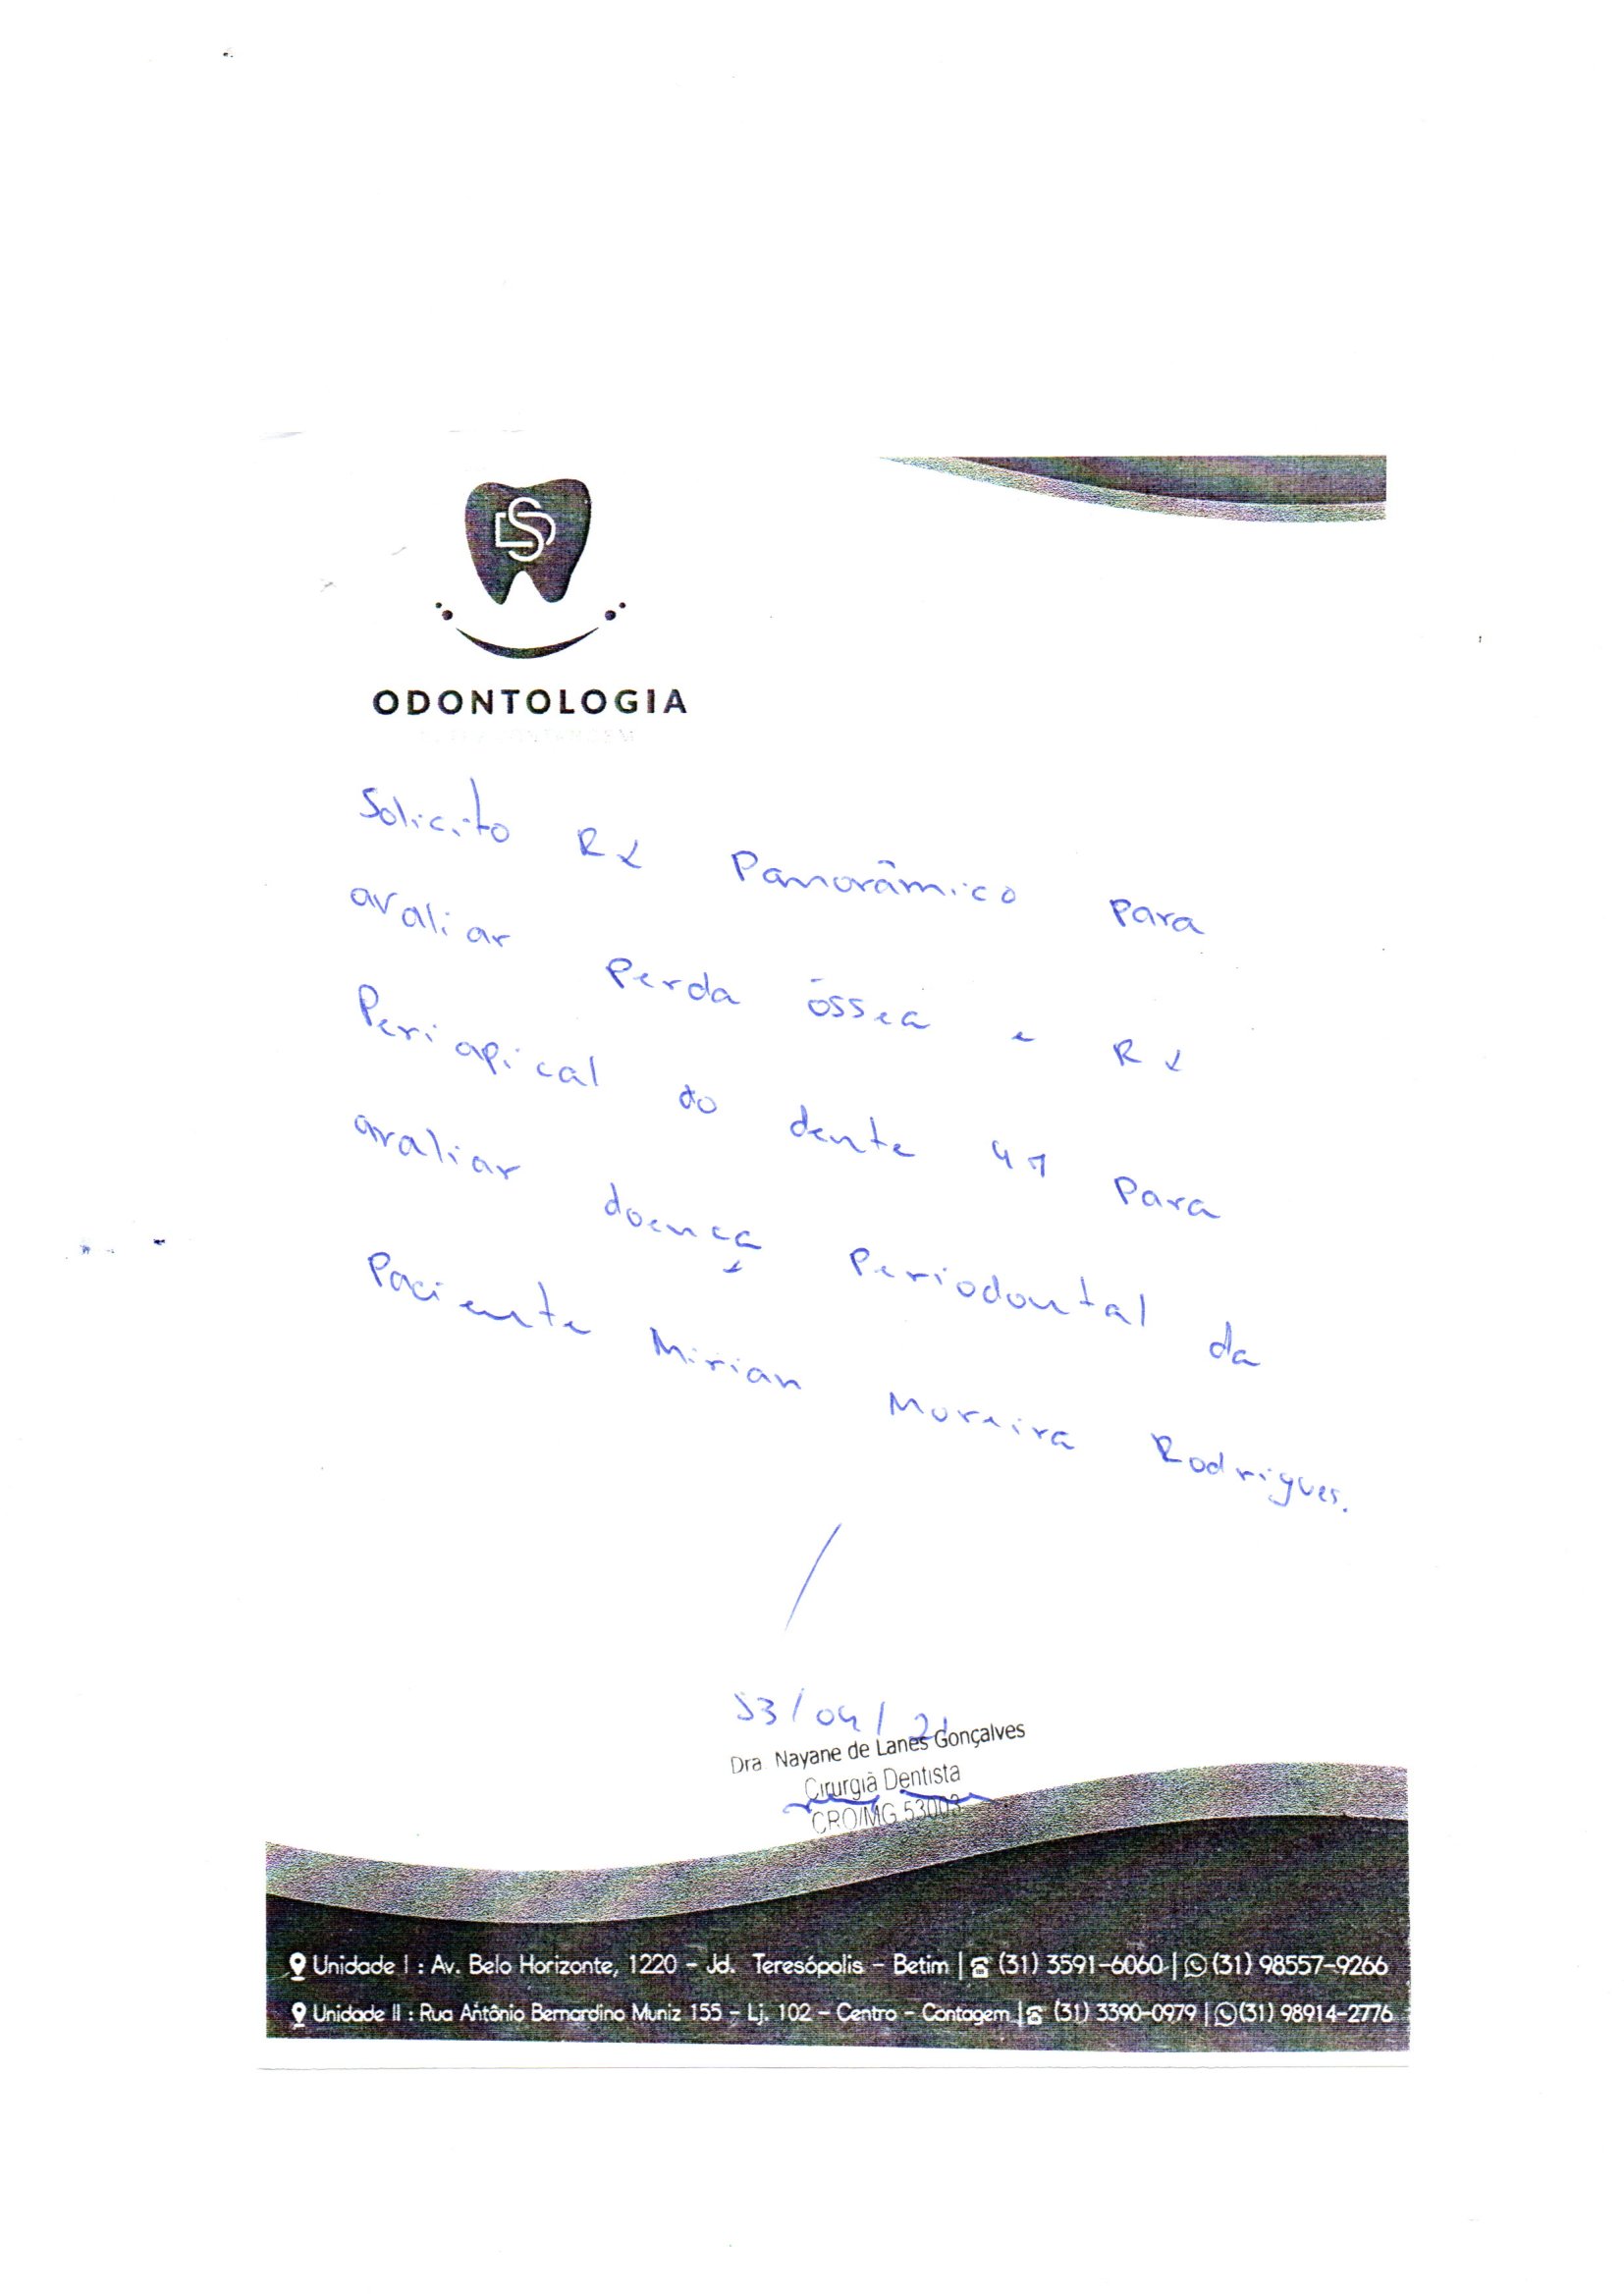 DS
ODONTOLOGIA
Solicito RX Panorâmico para
avaliar perda óssea e RX
Periapical do dente 41 para
avaliar doença Periodontal da
Paciente Mirian Moreira Rodrigues.
13/04/21
Dra. Nayane de Lanes Gonçalves
Cirurgiã Dentista
CRO/MG 53003
Unidade I : Av. Belo Horizonte, 1220 - Jd. Teresópolis - Betim | (31) 3591-6060 | (31) 98557-9266
Unidade II : Rua Antônio Bernardino Muniz 155 - Lj. 102 - Centro - Contagem | (31) 3390-0979 | (31) 98914-2776